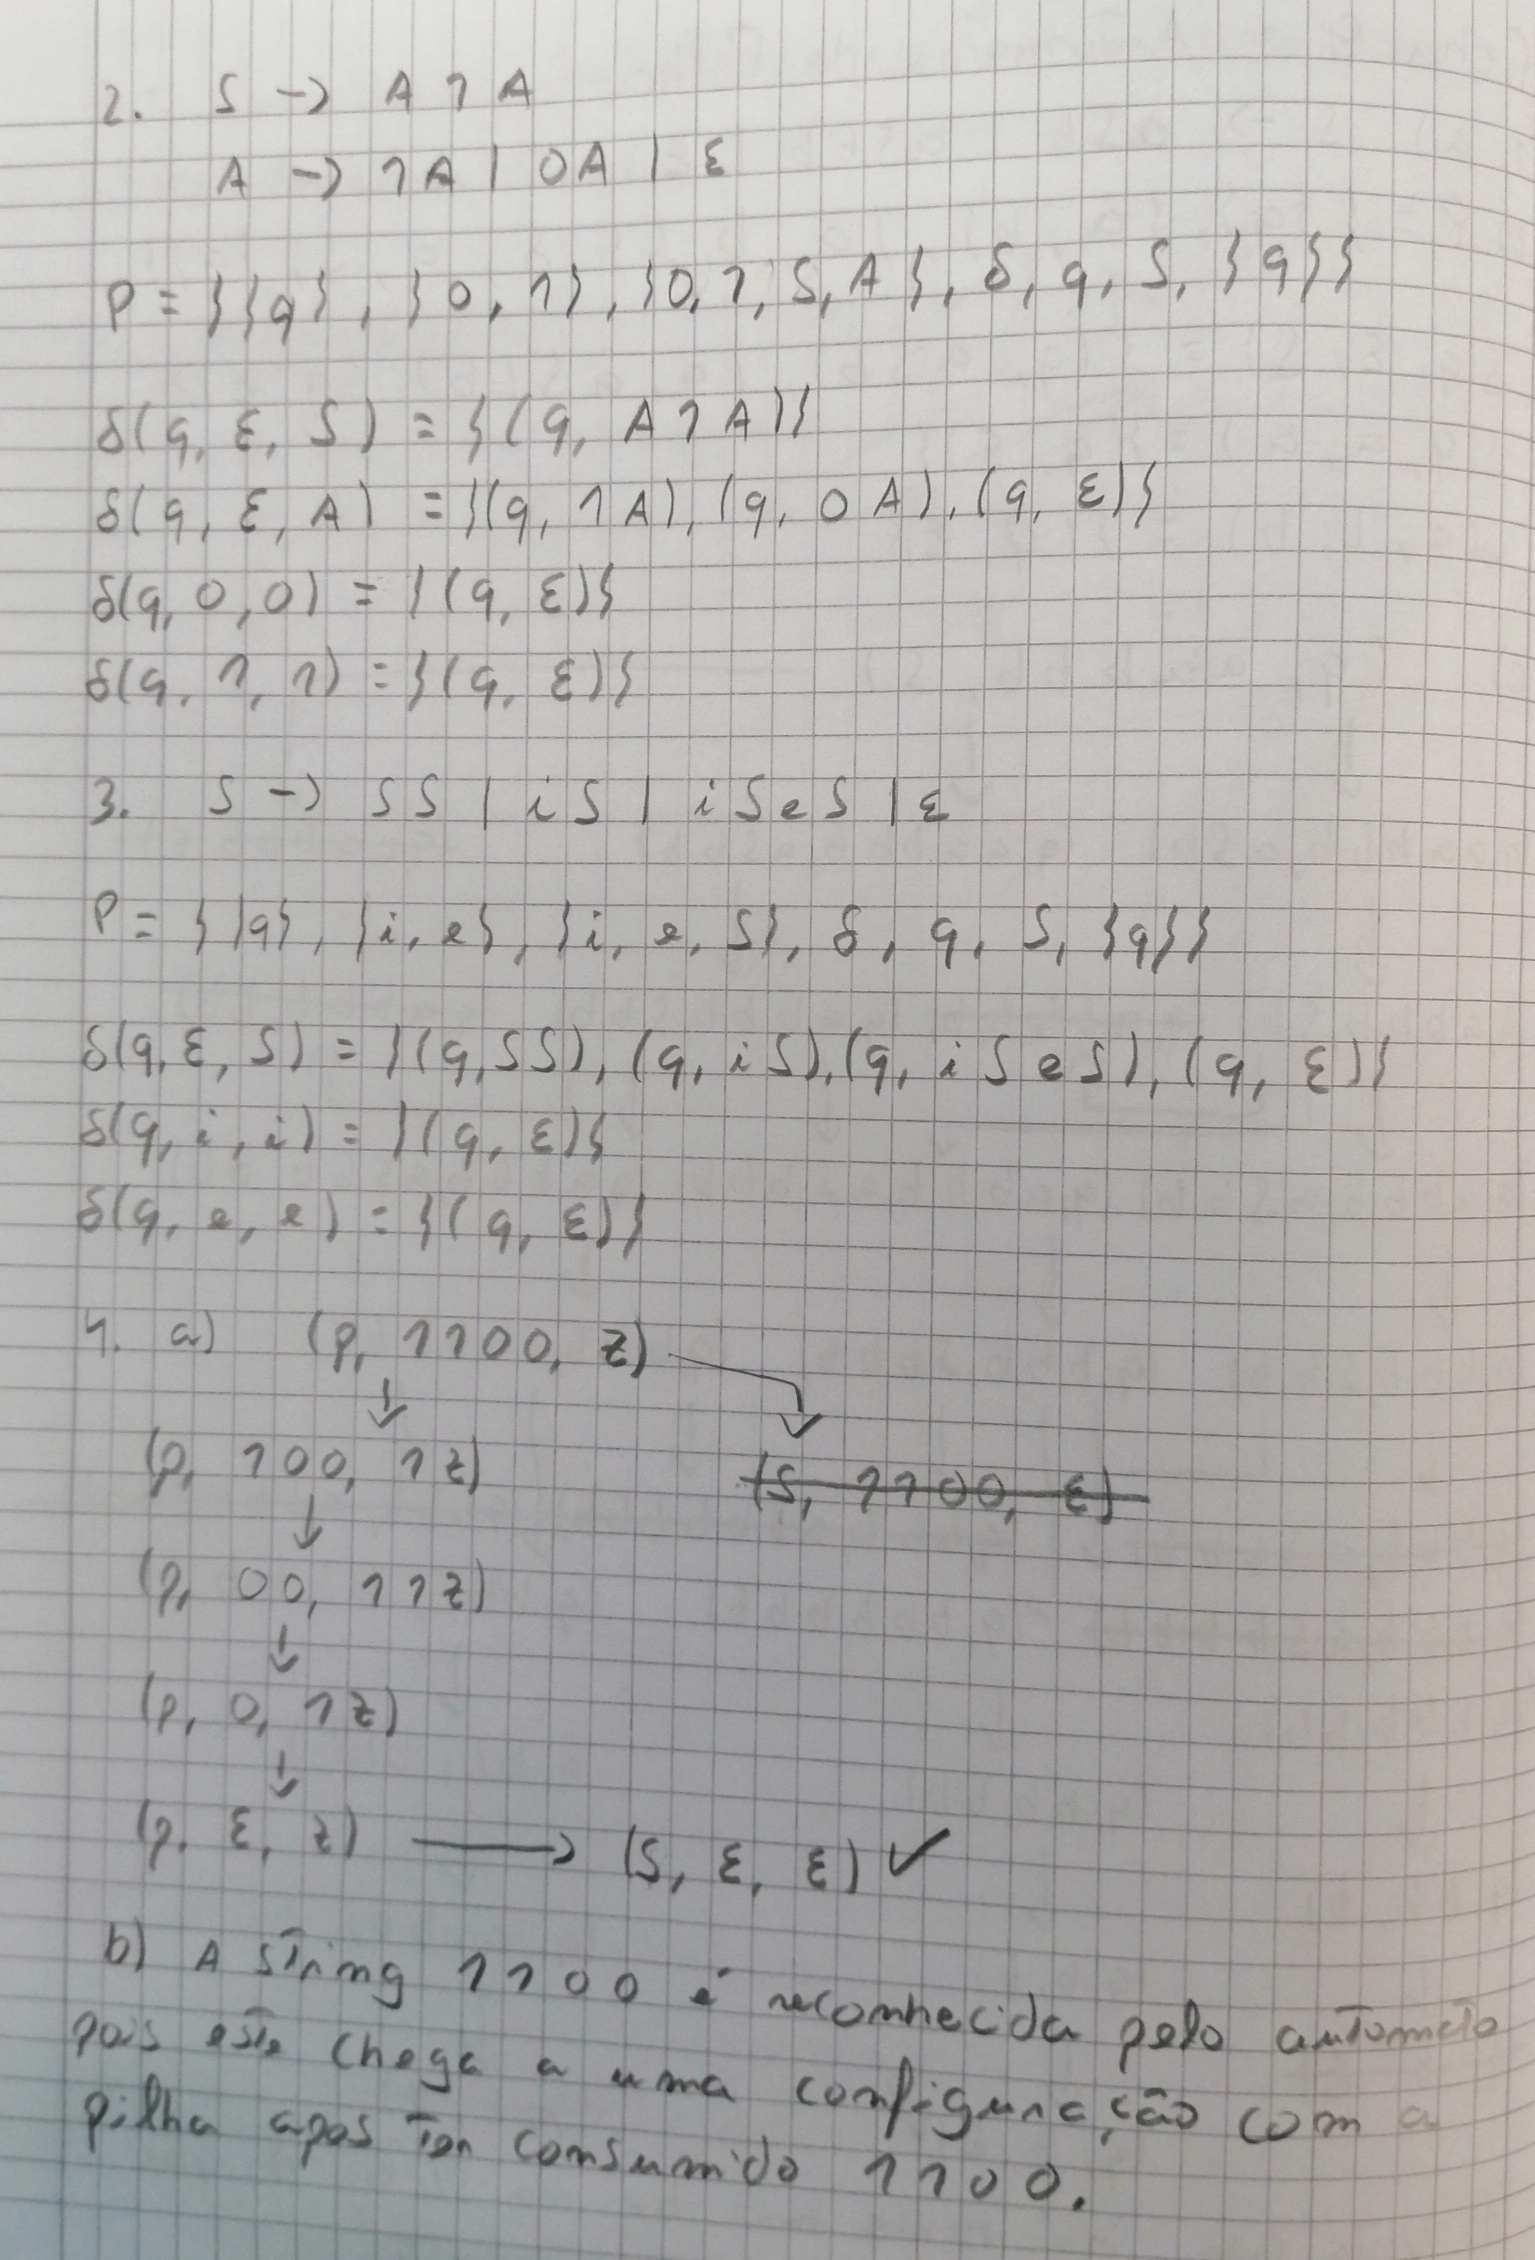 2. S -> A 1 A
A -> 1A | 0A | ε
P = {{q}, {0, 1}, {0, 1, S, A}, δ, q, S, {q}}
δ(q, ε, S) = {(q, A 1 A)}
δ(q, ε, A) = {(q, 1A), (q, 0A), (q, ε)}
δ(q, 0, 0) = {(q, ε)}
δ(q, 1, 1) = {(q, ε)}
3. S -> SS | iS | iSeS | ε
P = {{q}, {i, e}, {i, e, S}, δ, q, S, {q}}
δ(q, ε, S) = {(q, SS), (q, iS), (q, iSeS), (q, ε)}
δ(q, i, i) = {(q, ε)}
δ(q, e, e) = {(q, ε)}
4. a) (p, 1100, z)
(p, 100, 1z) (S, 1100, ε)
(p, 00, 11z)
(p, 0, 1z)
(p, ε, z) → (S, ε, ε) ✓
b) A string 1100 é reconhecida pelo automato
pois este chega a uma configuração com a
pilha apos ter consumido 1100.